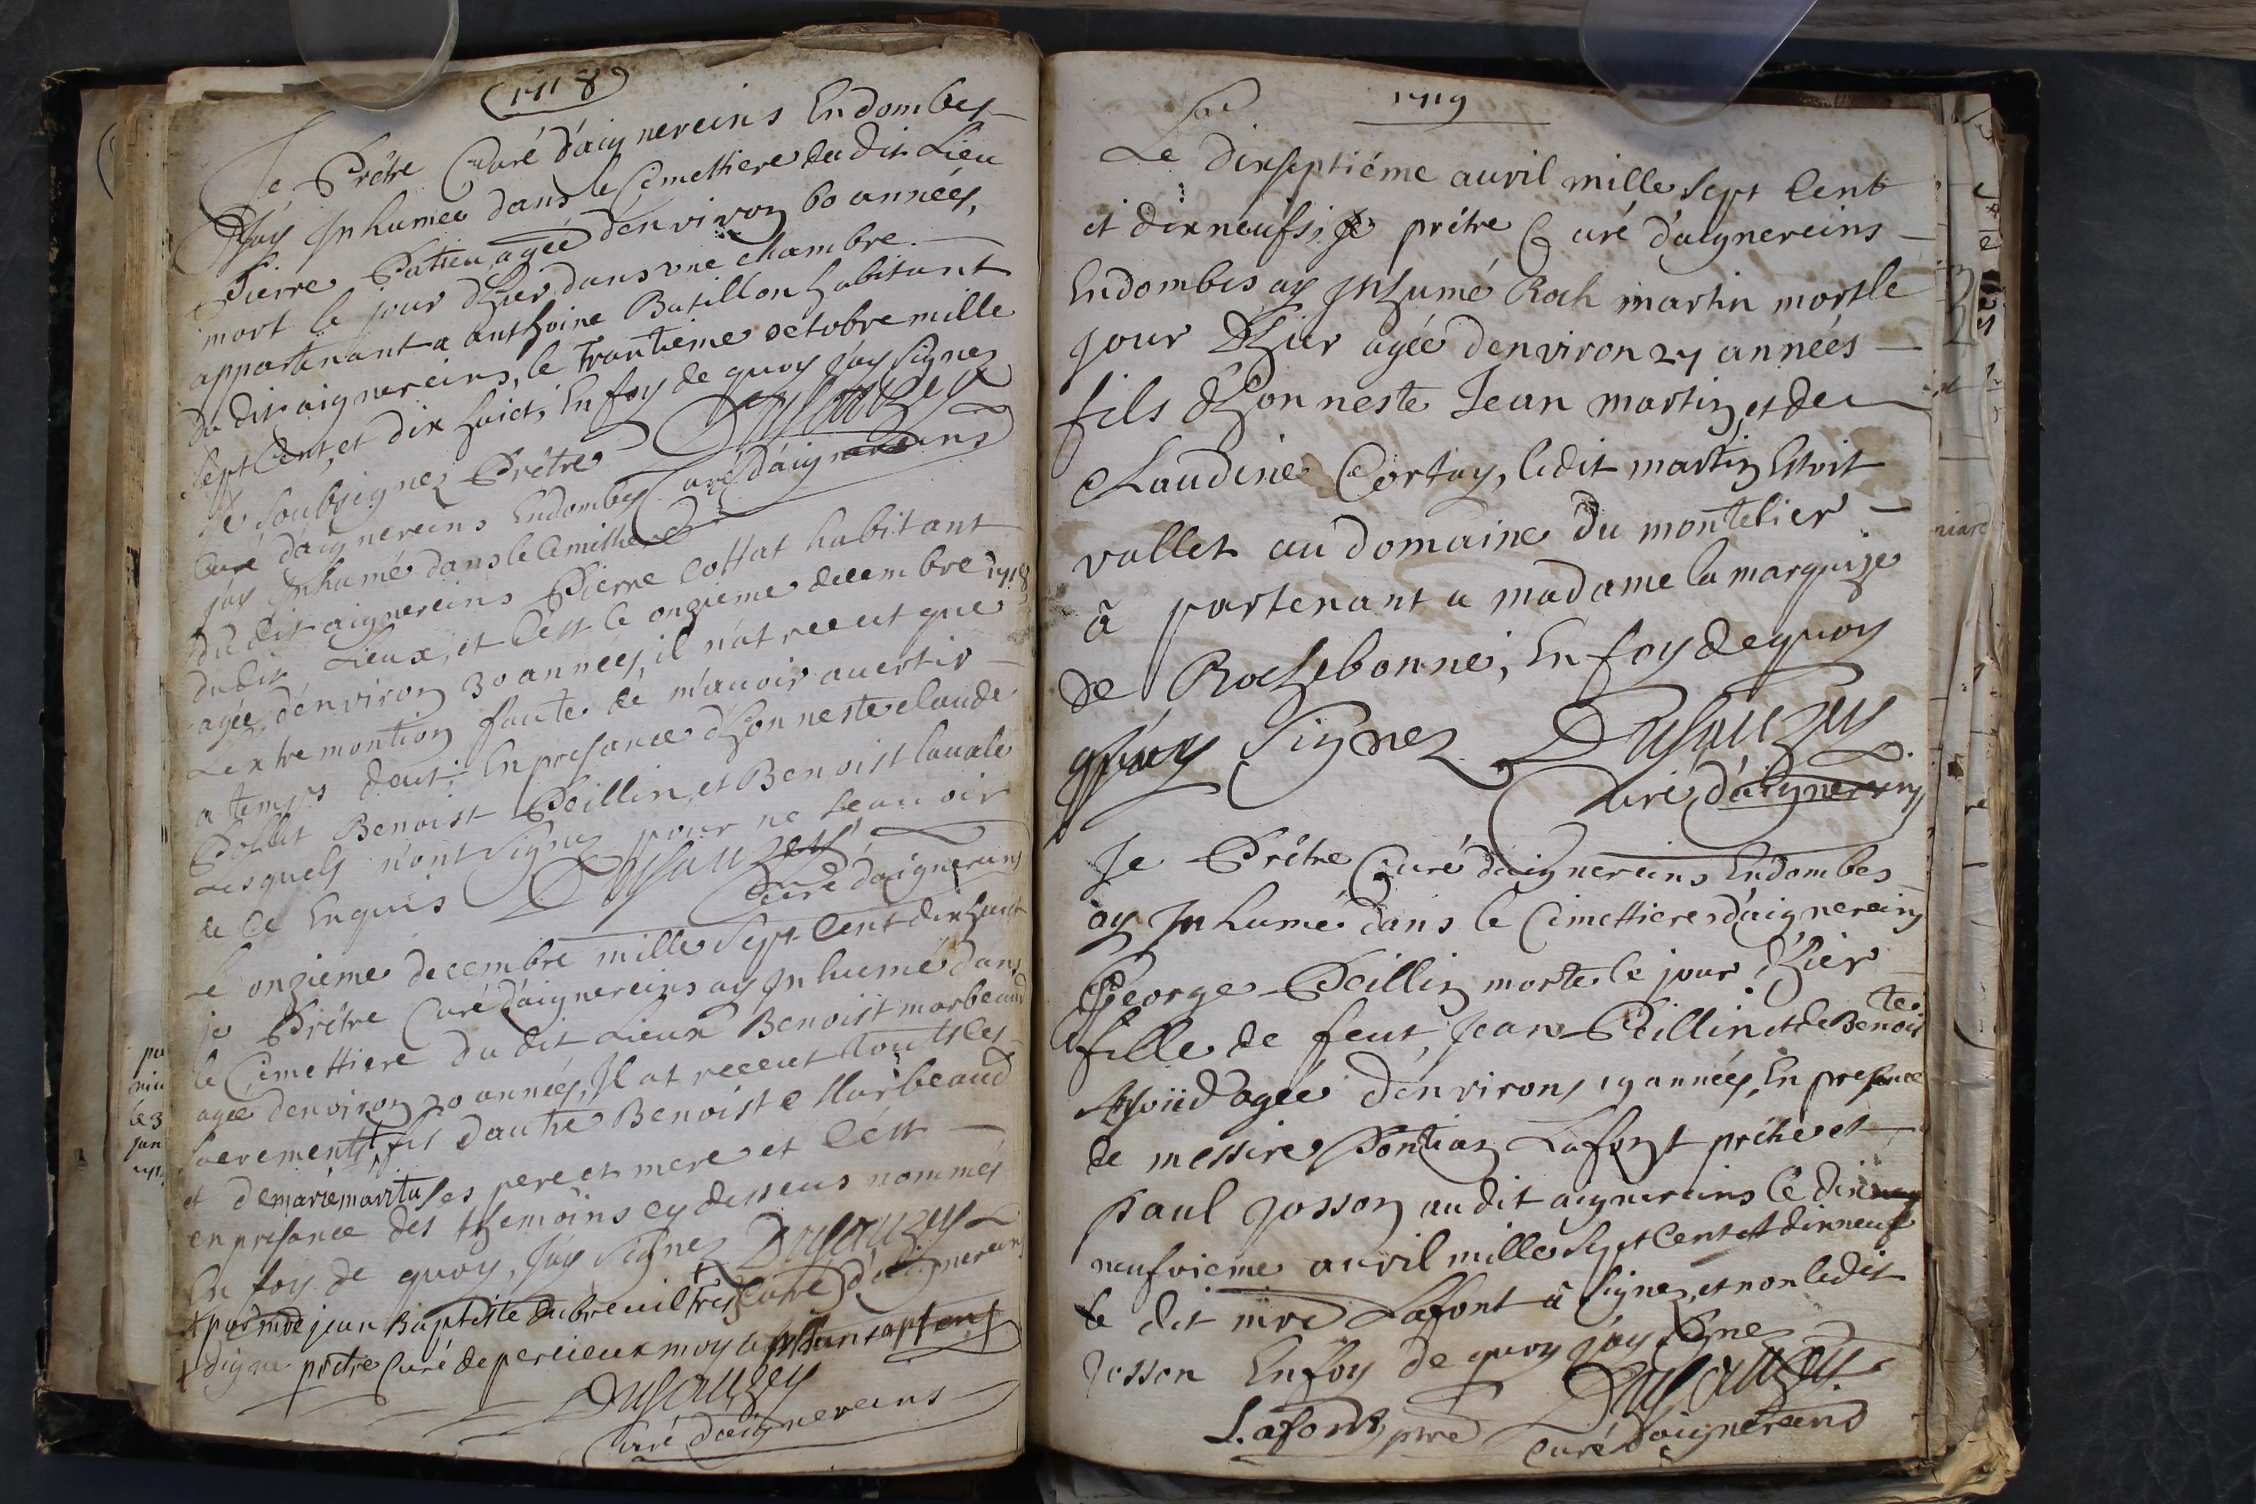 1718
Je Prêtre Curé d'aignereins Endombes
J'ay Inhumee dans le Cimettiere du dit Lieu
Pierre Patieu agée d'environ 60 années,
mort le jour d'hier dans une chambre
appartenant a anthoine Batillon habitant
du dit aignereins, le trantieme octobre mille
sept Cent et dix huict, En foy de quoy J'ay Signez
Dusauzey
Curé d'aignereins
Je Soubsignez Prêtre
Curé d'aignereins Endombes
J'ay Inhumé dans le Cimittiere
du dit aignereins Pierre Cottat habitant
dudit Lieux, et C'est le onzieme decembre 1718
agée d'environ 30 années, il n'at receut que
L'extremontion faute de m'avoir avertir
a temps deut; En presance d'honneste claude
Pollet Benoist Peillin, et Benoist lavale
Lesquels n'ont Signez pour ne Scauvoir
de Ce Enquis Dusauzey
Curé d'aignereins
Le onzieme decembre mille Sept Cent dix huict
je Prêtre Curé d'aignereins ay Inhumé dans
le Cimettiere du dit Lieux Benoist marbeaud
agée d'environ 20 années, Il at receut touts les
sacrements, fis d'autre Benoist Marbeaud
et de marie maritu ses pere et mere et C'est
en presance des themoins cy dessus nommés
En foy de quoy, J'ay Signez Dusauzey
Curé d'aignereins
+ par mre jean Baptiste dubreuil tres
+ digne prêtre Curé de percieux moy
Dusauzey
Curé d'aignereins
1719
Le dixseptiéme avril mille Sept Cent
et dix neufs, je prétre Curé d'aignereins
Endombes ay Inhumé Roch martin mort le
jour d'hier agée d'environ 27 années
fils d'honneste Jean martin, et de
Claudine Cortay, ledit martin Estoit
vallet au domaine du montelier
à partenant a madame la marquize
de Rochebonne, En foy de quoy
j'ay Signez Dusauzey
Curé d'aignereins
Je Prêtre Curé d'aignereins Endombes
ay Inhumé dans le Cimettiere d'aignereins
George Peillin morte le jour d'hier
fille de feut, Jean Peillin et de Benoiste
agée d'environs 19 années, En presance
de messire Pontian Lafont prêtre et
paul Josson au dit aignereins Ce dix
neufvieme avril mille Sept Cent et dixneuf
le dit mre Lafont à Signez, et non ledit
Josson En foy de quoy j'ay Signez
Dusauzey
Lafont, pre Curé d'aignereins